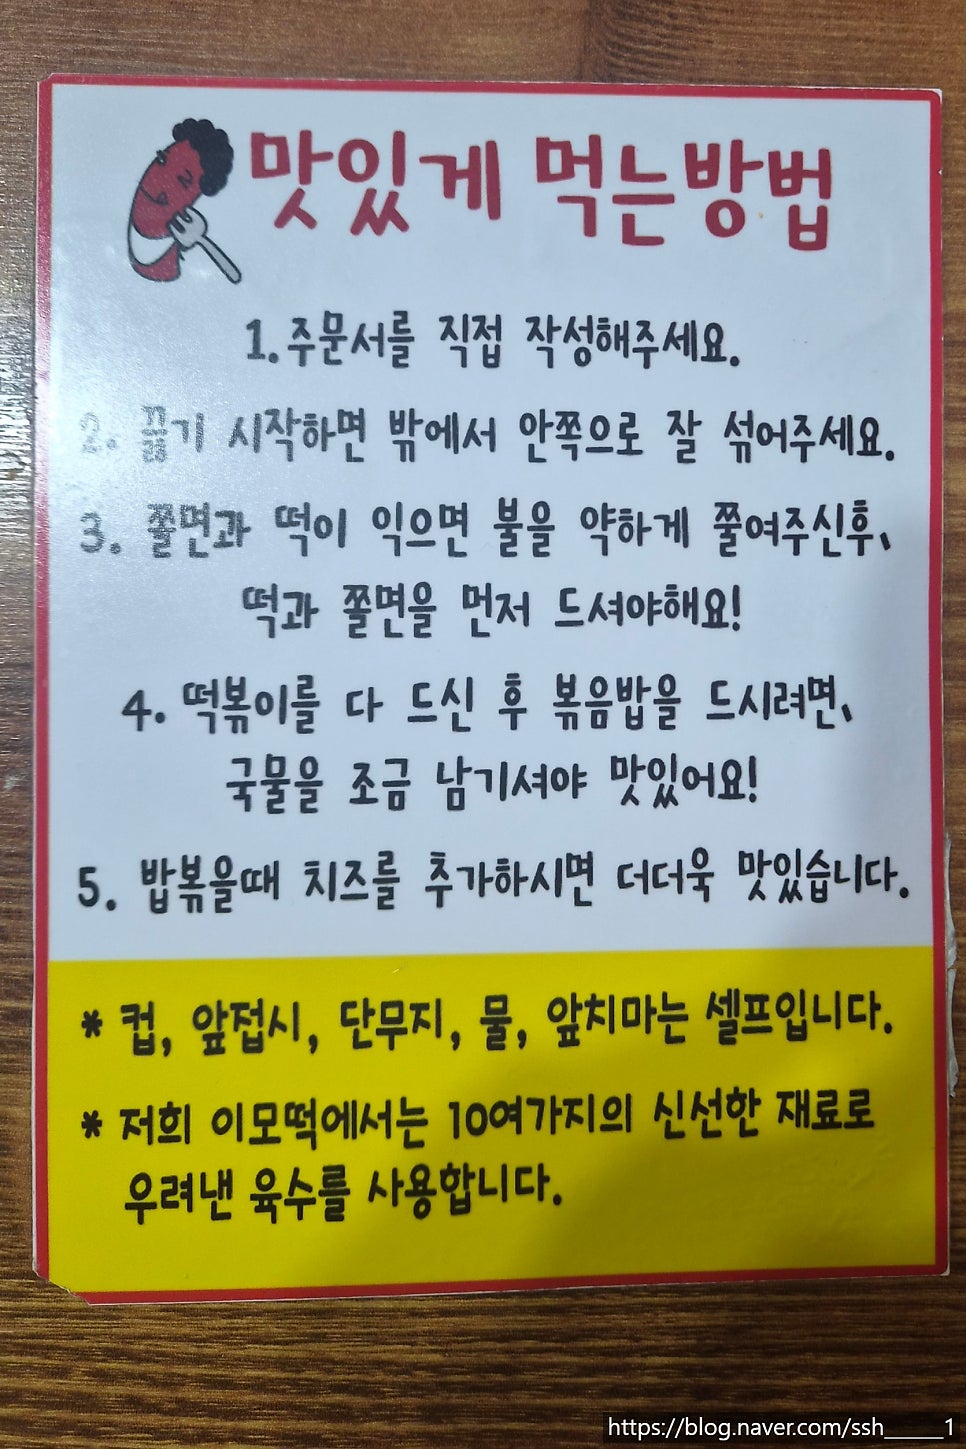 맛있게 먹는방법
1. 주문서를 직접 작성해주세요.
2. 끓기 시작하면 밖에서 안쪽으로 잘 섞어주세요.
3. 쫄면과 떡이 익으면 불을 약하게 쭐여주신후,
떡과 쫄면을 먼저 드셔야해요!
4. 떡볶이를 다 드신 후 볶음밥을 드시려면,
국물을 조금 남기셔야 맛있어요!
5. 밥볶을때 치즈를 추가하시면 더더욱 맛있습니다.
* 컵, 앞접시, 단무지, 물, 앞치마는 셀프입니다.
* 저희 이모떡에서는 10여가지의 신선한 재료로
우려낸 육수를 사용합니다.
https://blog.naver.com/ssh_____1